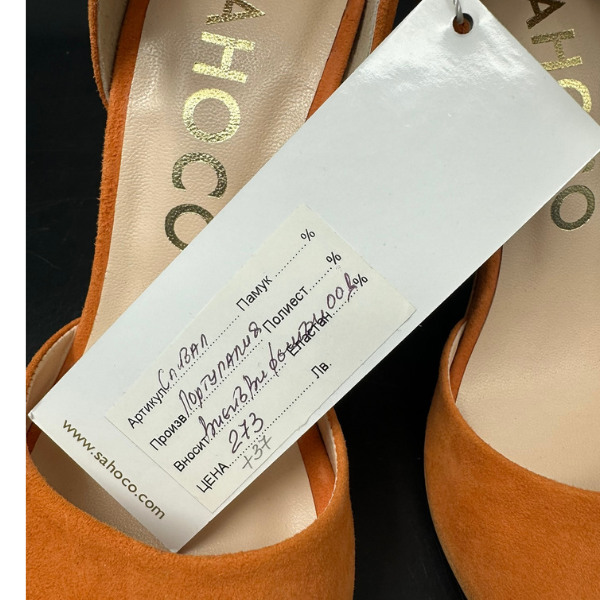 SAHOCO
SAHOCO
Артикул Сливал Памук ............ %
Произв. Португалия Полиест ........ %
Вносит Еластан %
ЦЕНА 273 Лв.
+37
www.sahoco.com